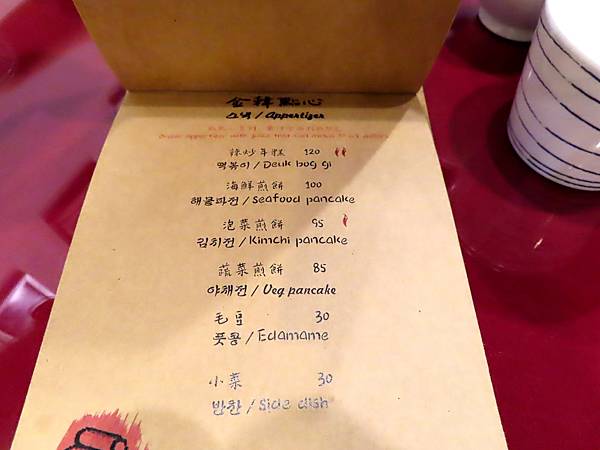 金韓點心
스넥 / Appertizer
辣炒年糕 120
떡볶이 / Deuk bog gi
海鮮煎餅 100
해물파전 / Seafood pancake
泡菜煎餅 95
김치전 / Kimchi pancake
蔬菜煎餅 85
야채전 / Veg pancake
毛豆 30
풋콩 / Edamame
小菜 30
반찬 / Side dish